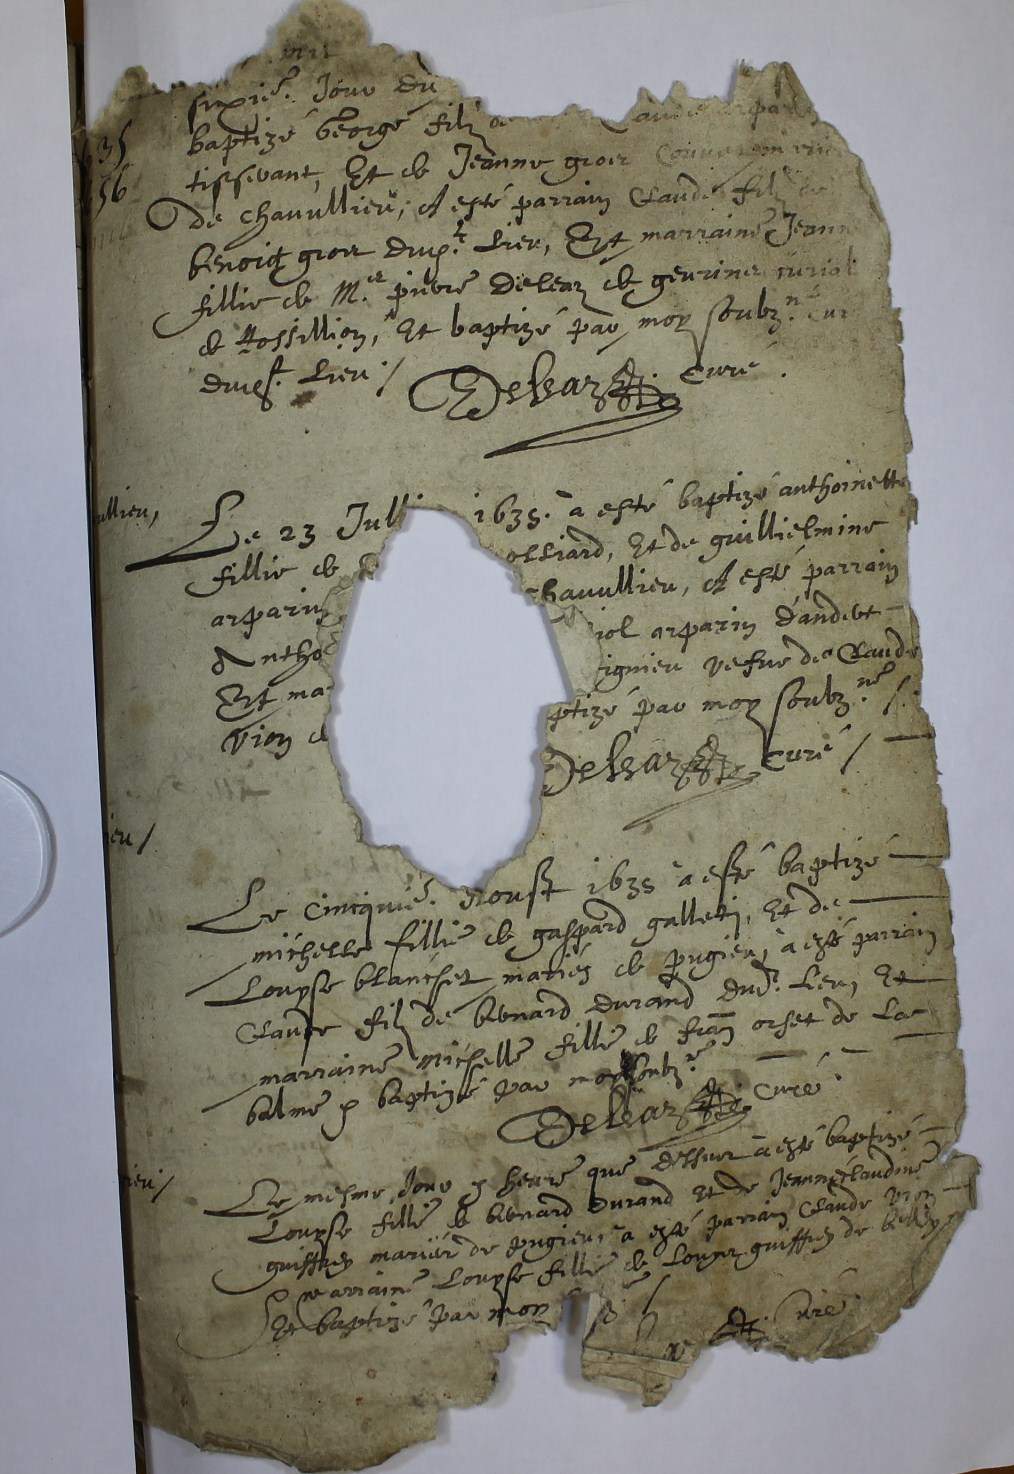 sixie. Jour du
baptizé George filz de
tisserant, Et de Jeanne groer
de chavullieu, A esté parrain Claude filz de
benoict groer dud. Lieu, Et marraine Jeanne
fillie de M.e pierre Deleaz de geurine curiol
de Rossillion, Et baptizé par moy soubz.né cur
dud. Lieu /
Delleaz curé.
Le 23 Jull 1635. à esté baptizé anthoinette
fillie de olliard, Et de guillielmine
arparin havullieu, A esté parrain
Antho iol arparin d'andert
Et ma ignieu vefve de Claude
vion d ptizé par moy soubz.né /.
Delleaz curé /
Le cincquie. Aoust 1635 à esté baptizé
michelle fillie de gaspard galleti, Et de
Loupse blanchet mariés de pugieu, à esté parrain
Claude filz de bernard durand dud. Lieu, Et
marraine michelle fillie de fran orset de La
balme & baptizé par moy soubz.né
Delleaz curé.
Le mesme Jour & heure que dessus à esté baptizé
Loupse fillie de bernard durand Et de Jeanne claudine
guiffrey mariés de pugieu, à esté parrain Claude vion
marraine Loupse fillie de Loupz guiffrey de belley
Et baptizé par moy
curé.
35
56
ullieu,
ieu /
ieu /